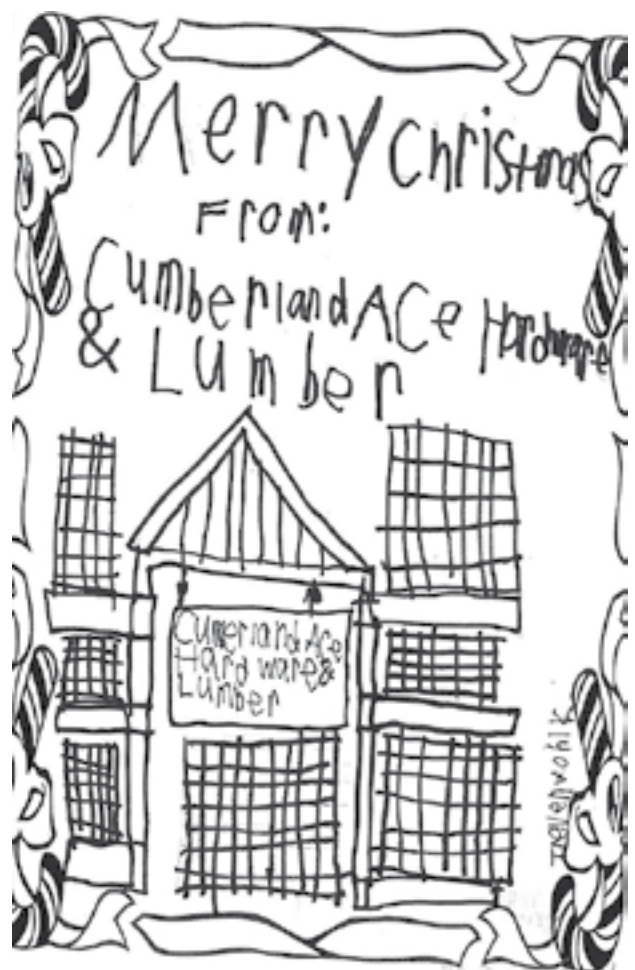 Merry Christmas
From:
Cumberland Ace Hardware
& Lumber
Cumerland Ace
Hardware &
Lumber